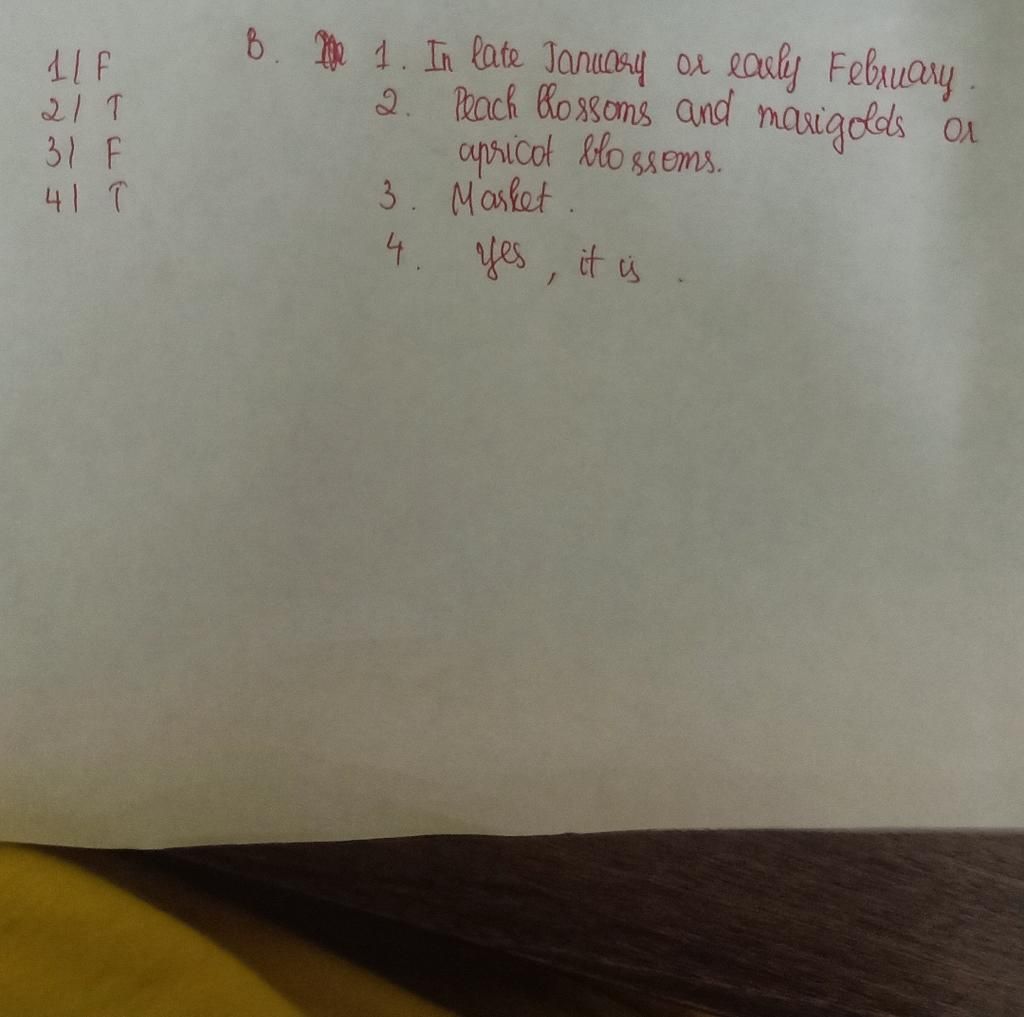 1/ F
2/ T
3/ F
4/ T
B. 1. In late January or early February.
2. Peach blossoms and marigolds or
apricot blossoms.
3. Market.
4. Yes, it is.